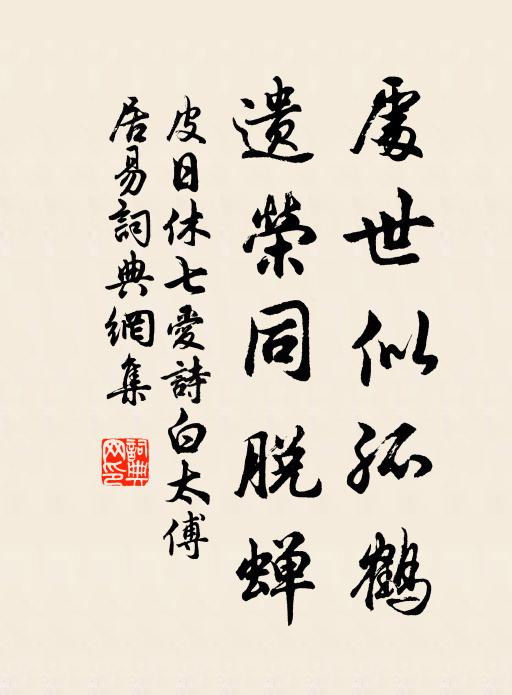 處世似孤鶴
遺榮同脫蟬
皮日休七愛詩白太傅
居易詞典網集
詞典網印